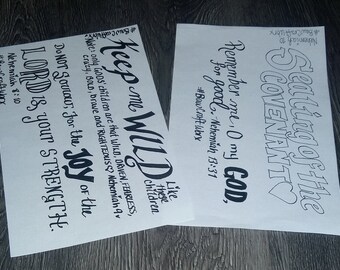 Keep me WILD
Like those children
only Gods children are that WILD, DRIVEN, FEARLESS,
crazy, BOLD, Brave and RIGHTEOUS ♡ Nehemiah 9
Do not sorrow, for the JOY of the
LORD is your STRENGTH.
Nehemiah 8:10
Nehemiah 10
Sealing of the
COVENANT ♡
Remember me, O my GOD,
for good. Nehemiah 13:31